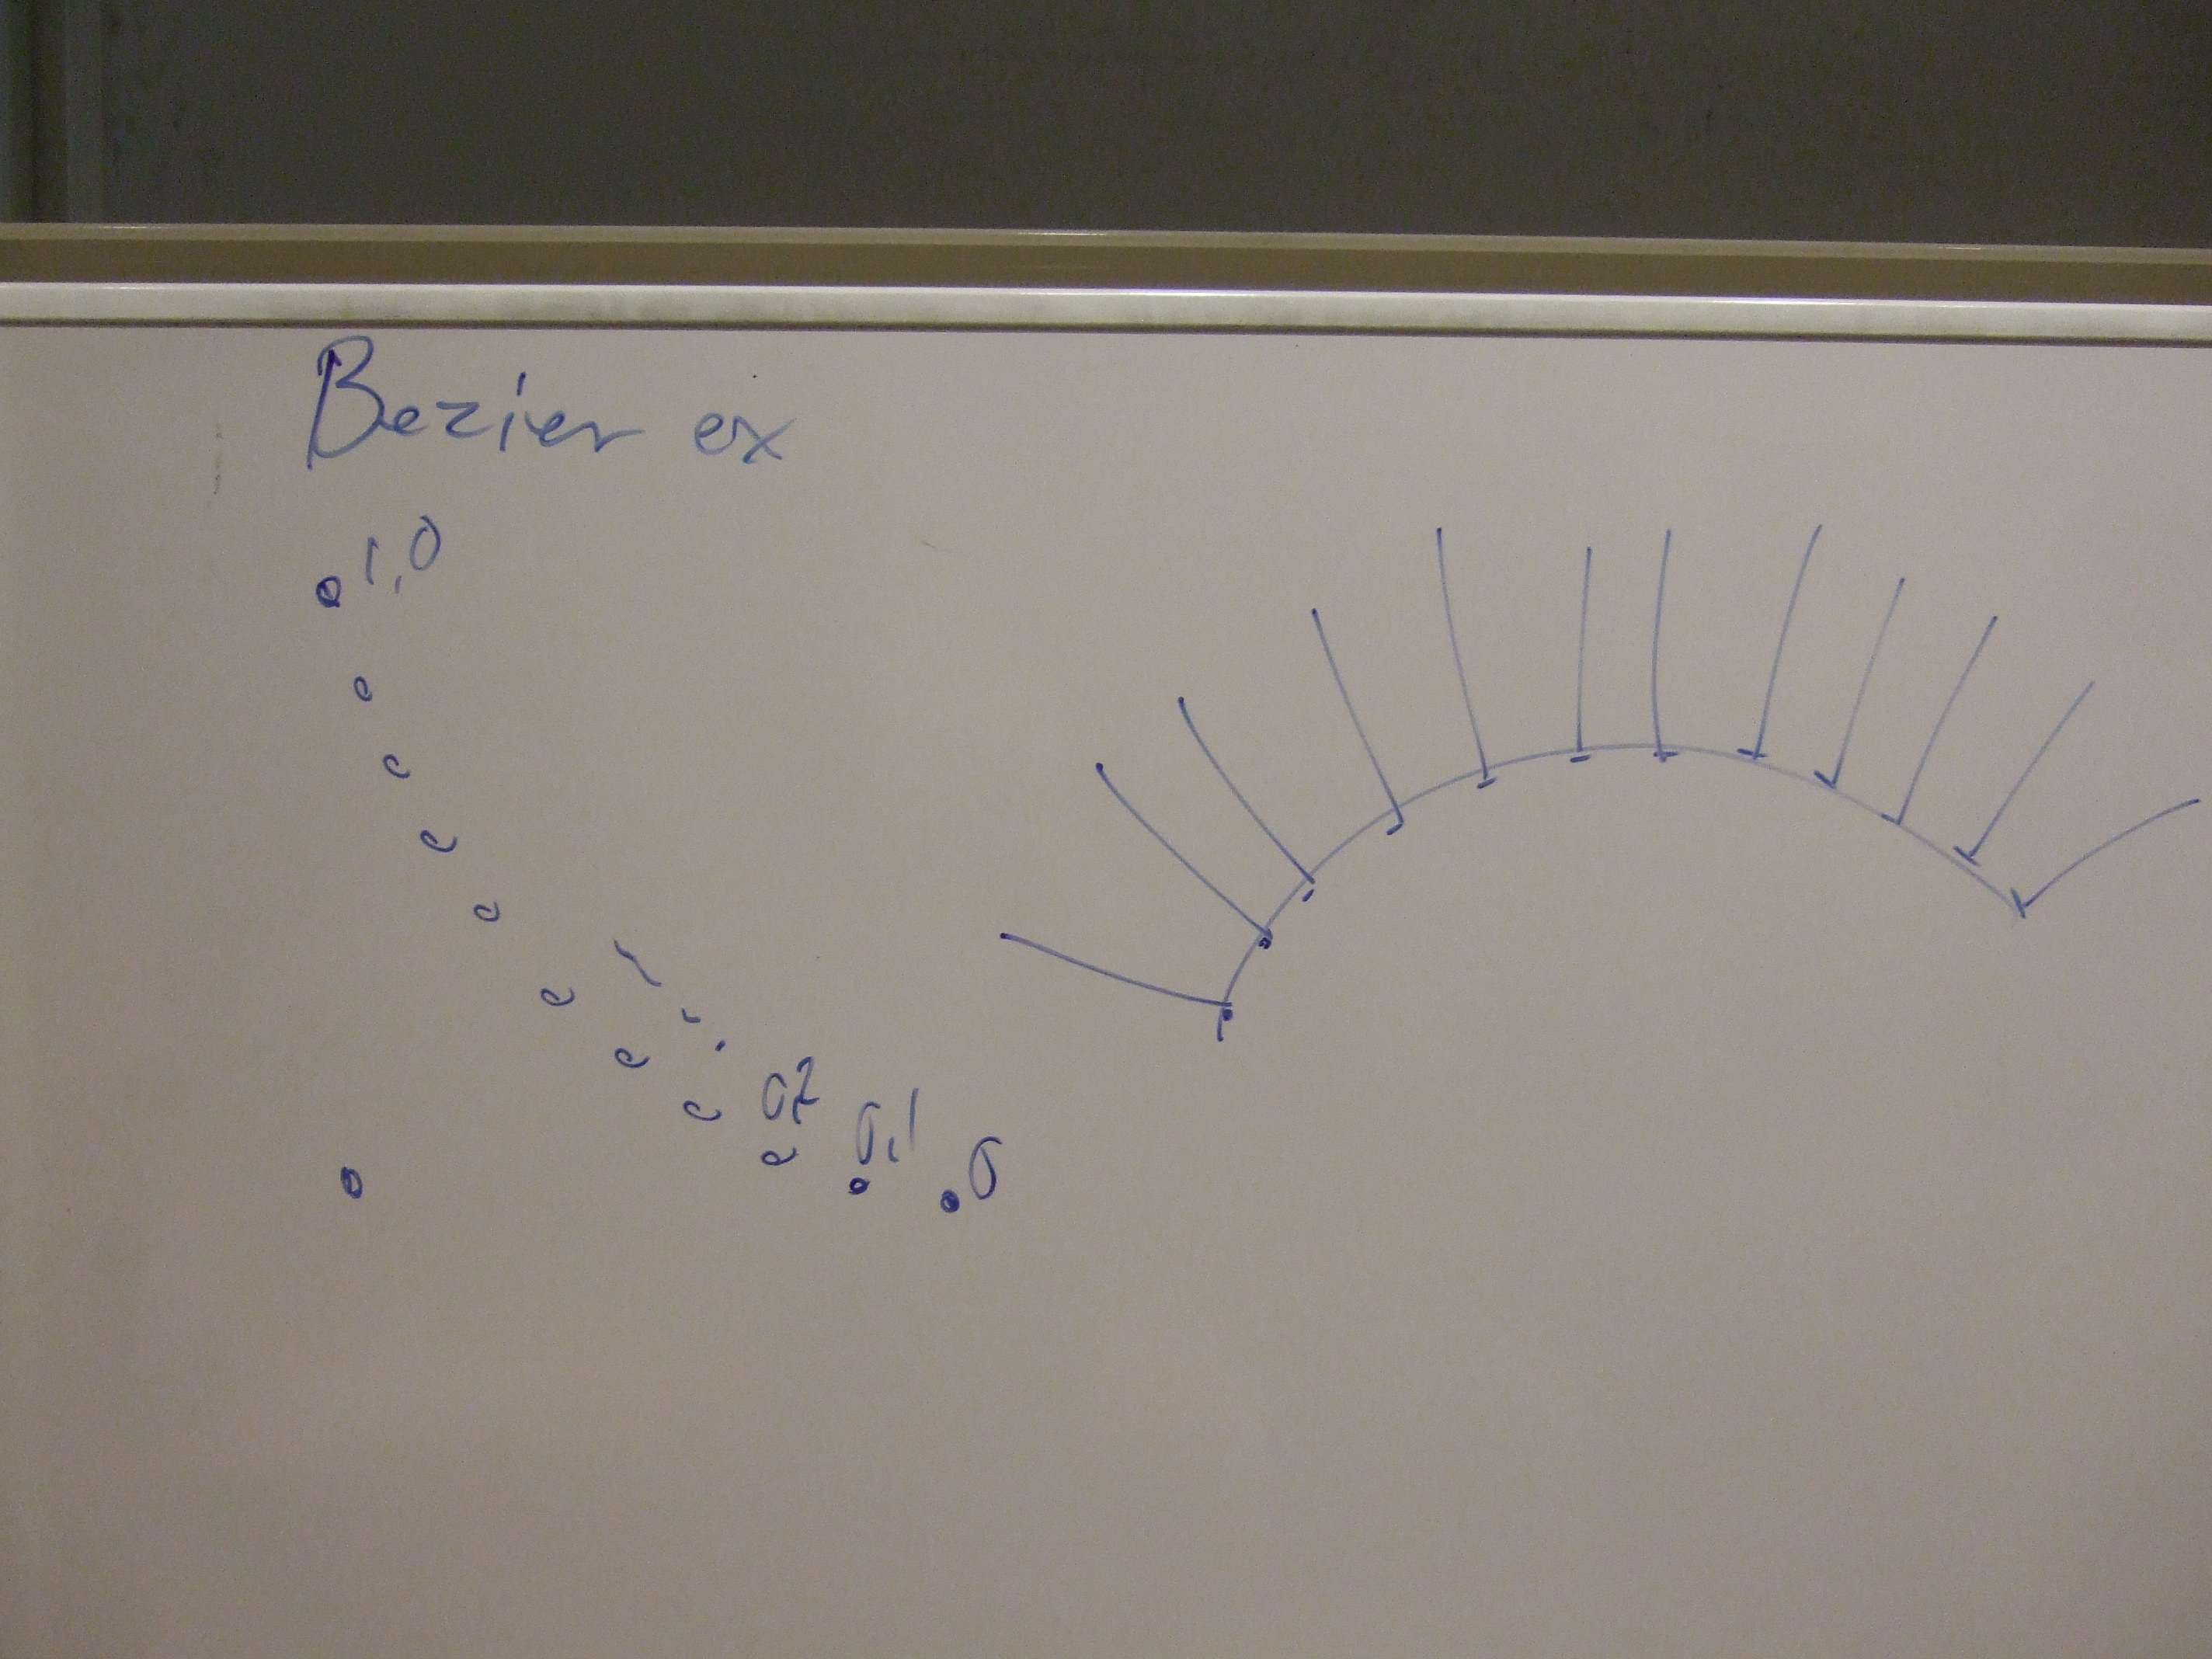 Bezier ex
1,0
0,2
0,1
0